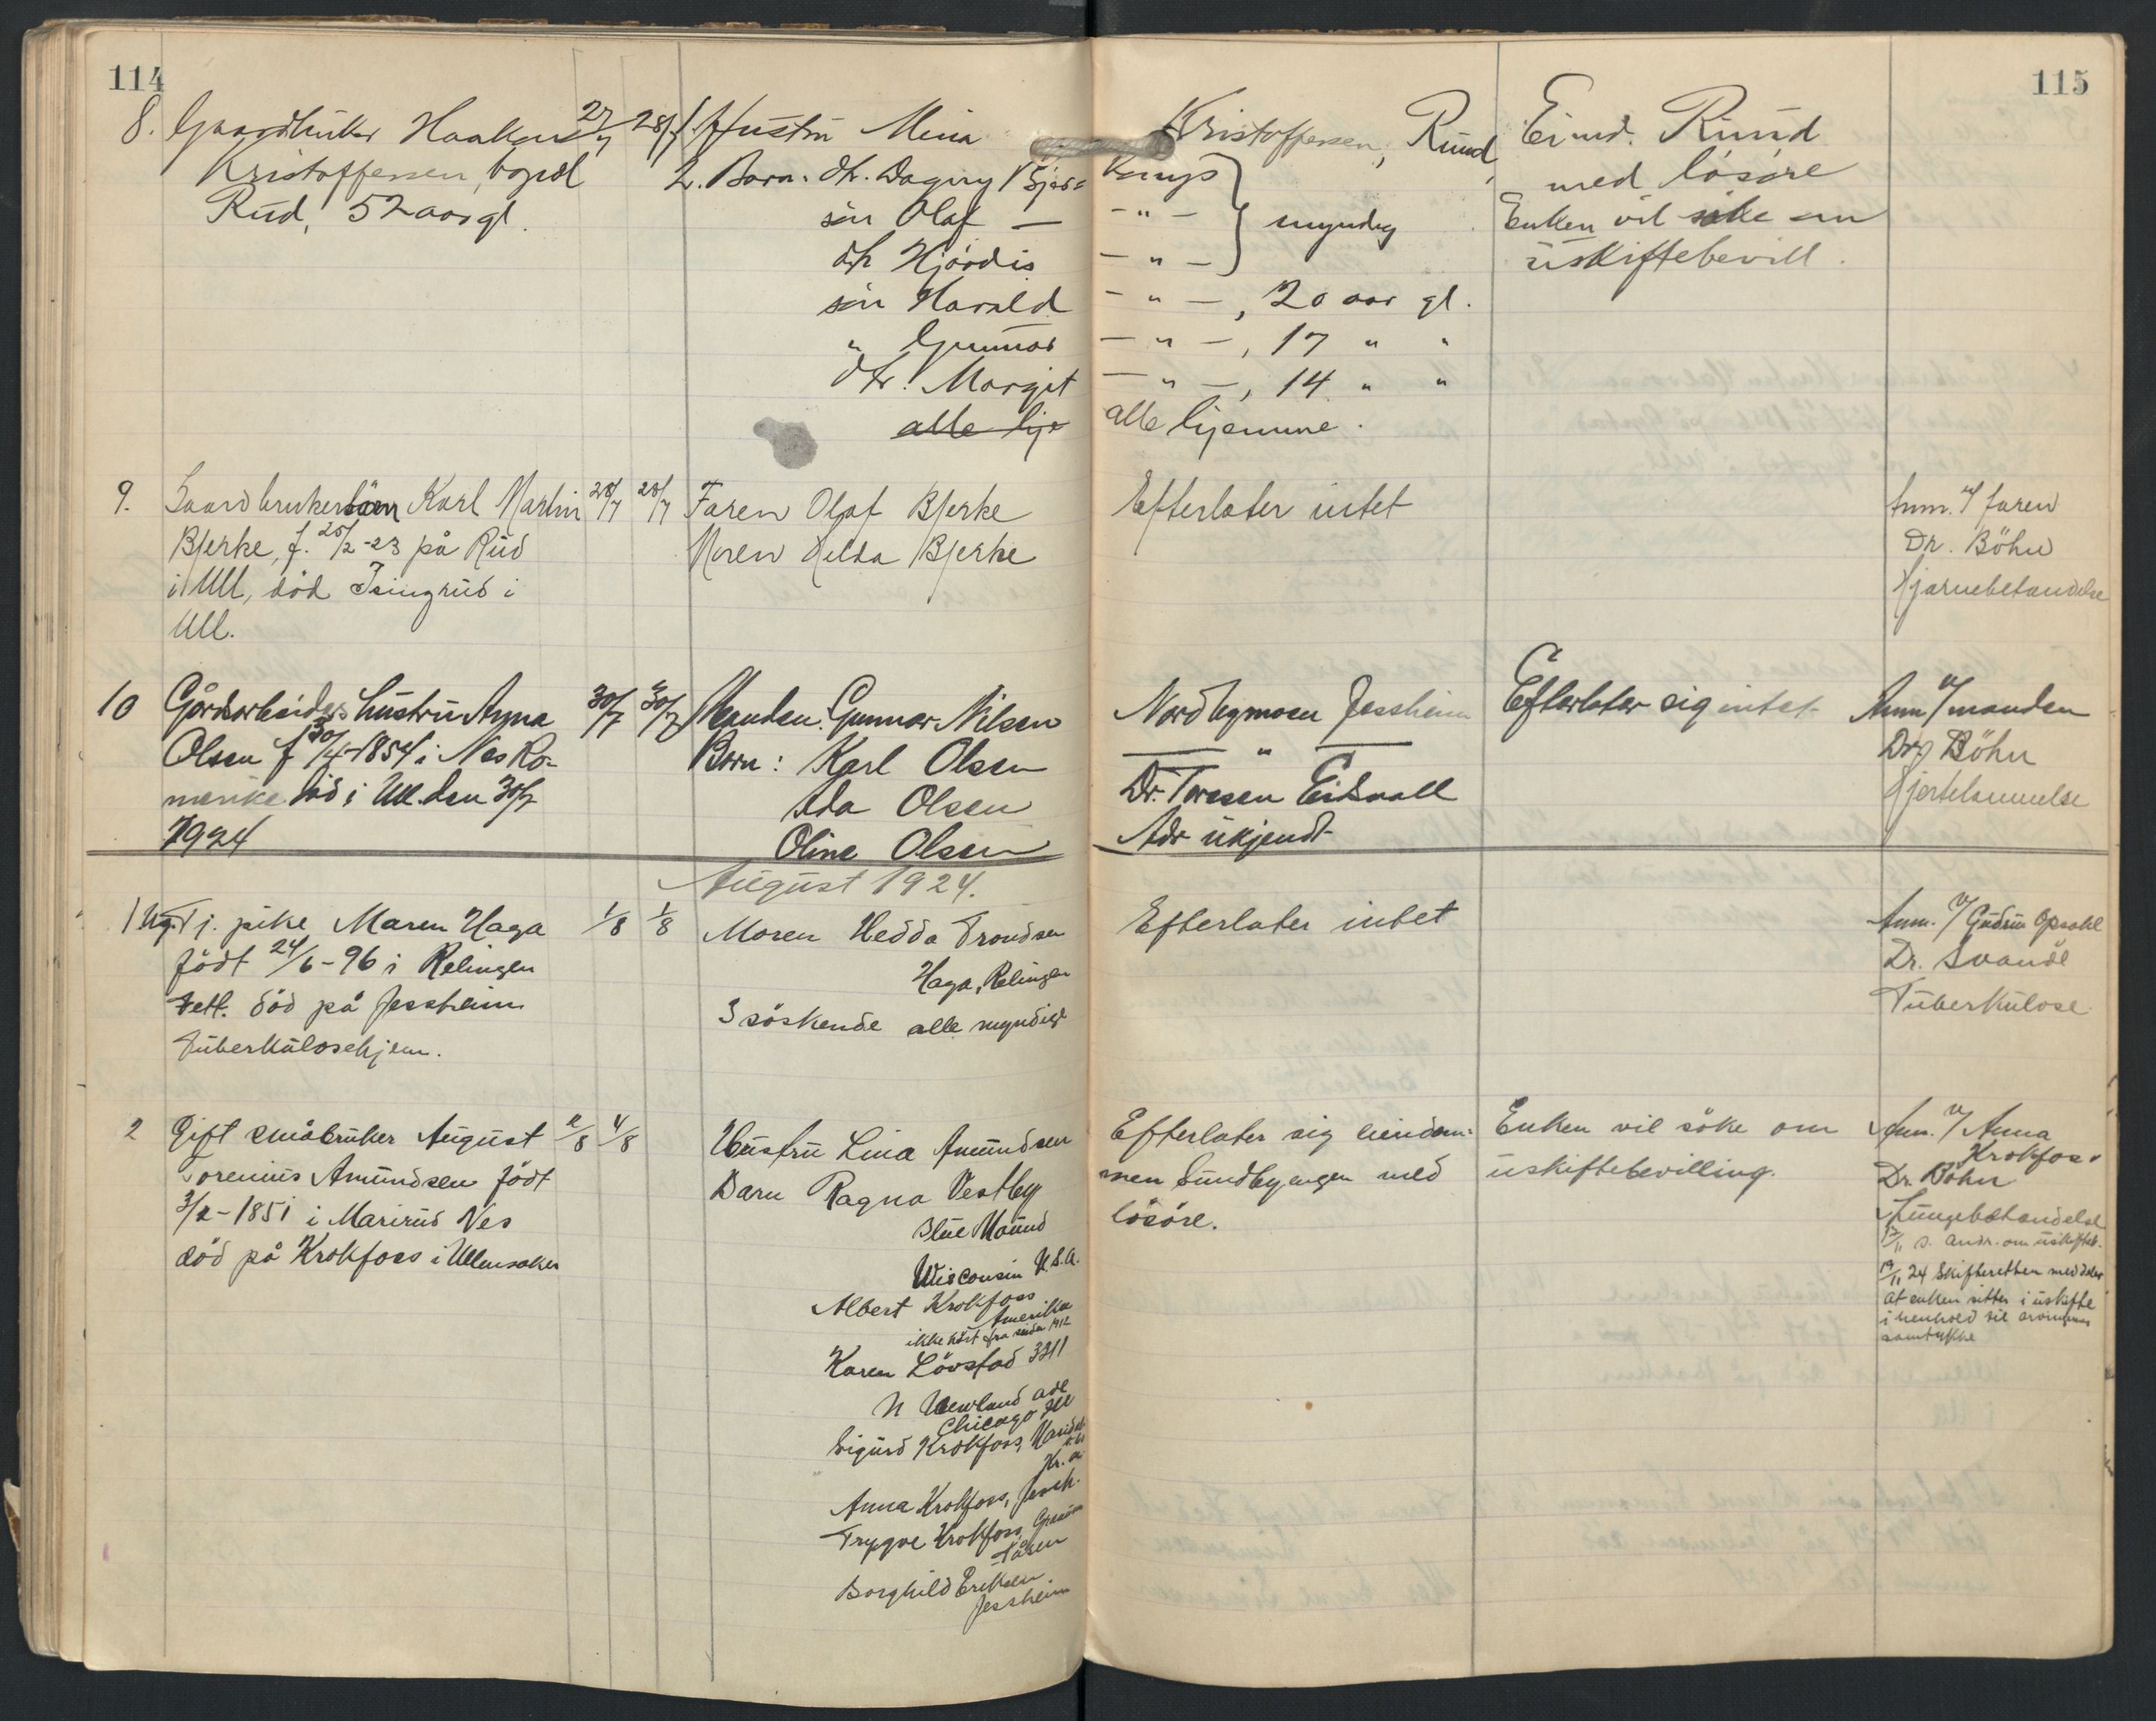 114
8. Gaardbruker Haakon 27/7 28/7 1. Hustru Mina
Kristoffersen, bopæl 2. Barn: dtr. Dagny
Rud, 52 aar gl. sön Olaf —
dtr Hjördis
sön Harald
" Gunnar
dtr. Margit
alle hje
9. Gaardbrukersön Karl Martin 28/7 28/7 Faren Olaf Bjerke
Bjerke, f. 25/2-23 på Rud Moren Hilda Bjerke
i Ull, död i
Ull.
10 Gårdarbeiders hustru Anna 30/7 30/7 Manden. Gunnar Nilsen
Olsen f 30/4-1854 i Nes Ro- Barn: Karl Olsen
merike död i Ull. den 30/7 Ida Olsen
1924 Oline Olsen
August 1924.
1 Ug. Tj. pike Maren Haga 1/8 1/8 Moren Hedda Trondsen
födt 24/6-96 i Relingen Haga, Relingen
död på Jessheim 3 söskende alle myndige
Tuberkulosehjem.
2 Gift småbruker August 2/8 4/8 Hustru Lina Amundsen
Lorenius Amundsen födt Barn Ragna Vestby
3/2-1851 i Marirud Nes Blue Mound
död på Krokfoss i Ullensaker Wisconsin U.S.A.
Albert Krokfoss
Amerika
ikke hört fra siden 1912
Karen Lövstad 3311
N Newland ave
Chicago Ill
Sigurd Krokfoss,
Kr. a
Anna Krokfoss, Jessh.
Trygve Krokfoss,
Tåsen
Borghild Eriksen
Jessheim
115
Kristoffersen, Ruud, Eiend. Ruud
med lösöre
- " - } myndig Enken vil söke om
- " - uskiftebevill.
- " -, 20 aar gl.
- " -, 17 " "
- " -, 14 " "
alle hjemme.
Efterlater intet Anm. v/ faren
Dr. Böhn
Hjernebetændelse
Nordbymoen Jessheim Efterlater sig intet Anm v/ manden
— " — Dr. Böhn
Dr. Toresen Eidsvoll Hjertelammelse
Adr ukjendt
Efterlater intet Anm. v/ Gudrun Opsahl
Dr.
Tuberkulose
Efterlater sig eiendom- Enken vil söke om Anm. v/ Anna
men Sundbyengen med uskiftebevilling. Krokfoss
lösöre. Dr. Böhn
Lungebetændelse
12/11 s. andr. om uskifteb.
19/11 24 Skifteretten meddeler
at enken sitter i uskifte
i henhold til arvingenes
samtykke